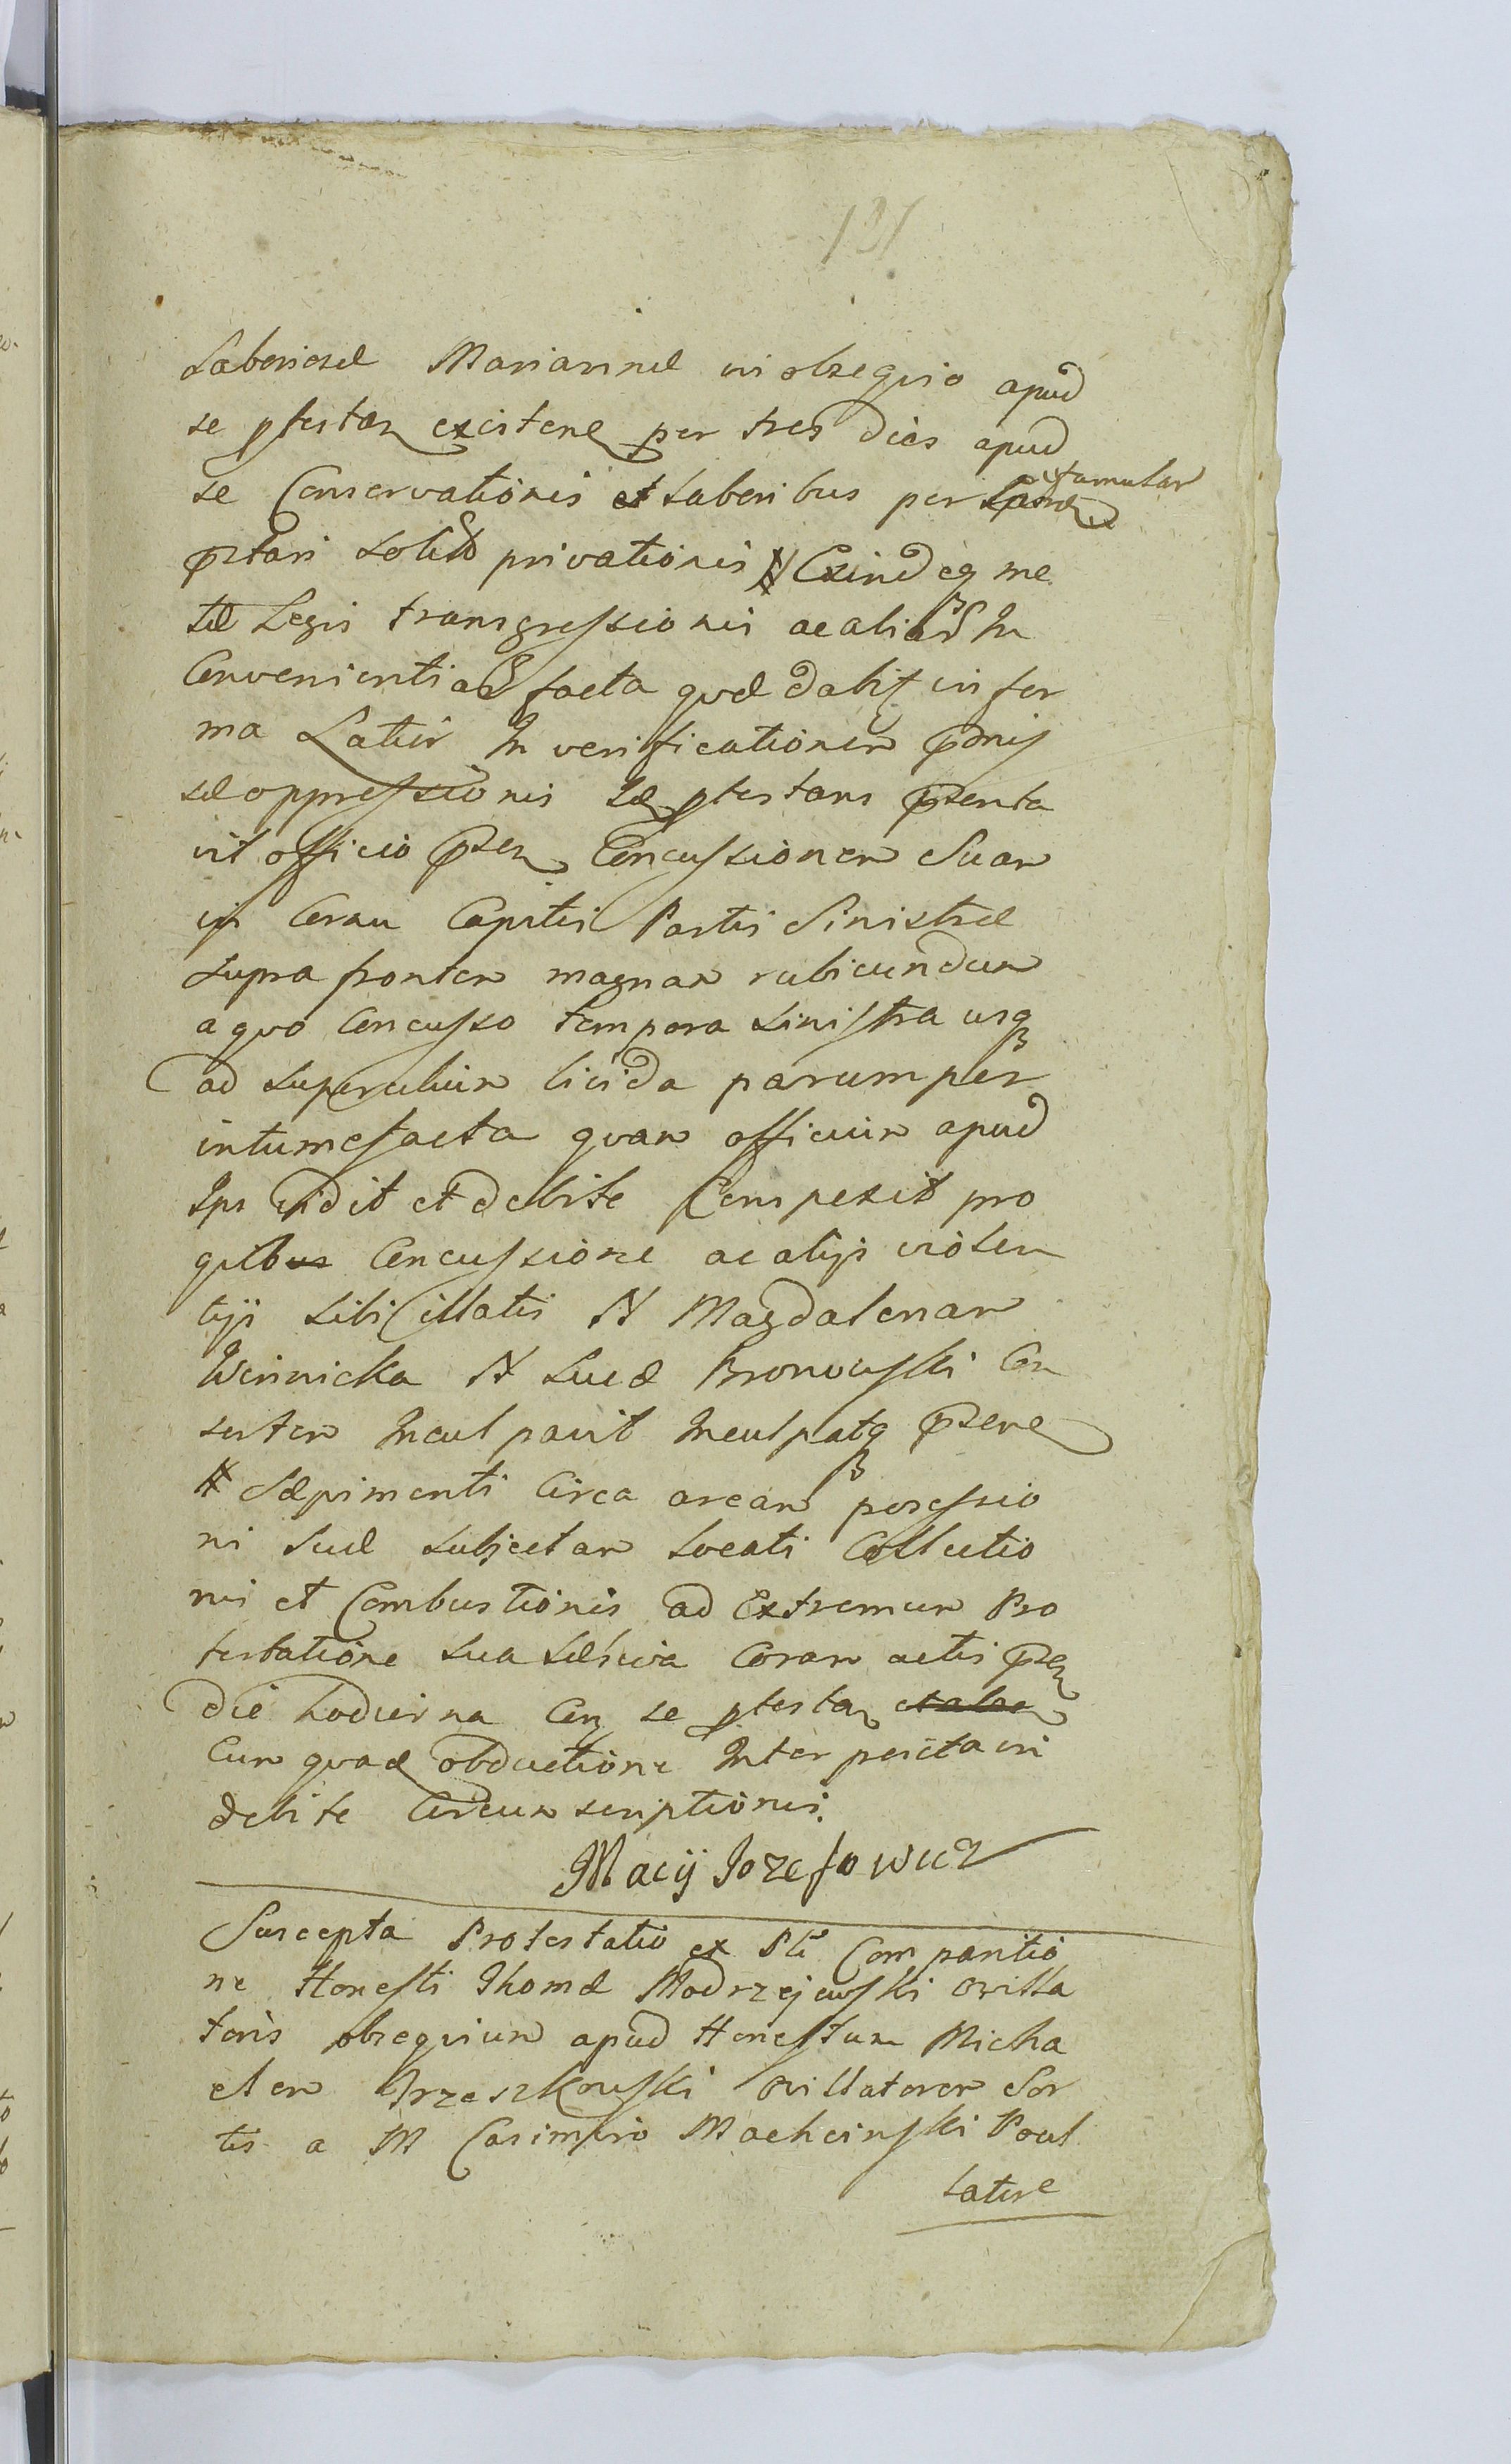 131
Laboriosæ Mariannæ in obsequio apud
se ptestan existene per tres dies apud
se Conservationis et laboribus per famular
pstari solit privationis Exindeq me
tæ Legis transgressionis ac aliar In
Convenientiar facta quæ dabit in for
ma Latiũ In verificationem pmis
sæ oppressionis Idẽ ptestans psenta
vit officio psen Concussionem Suam
in Cornu Capitis Partis Sinistræ
supra frontem magnam rubicundam
a quo Concusso tempora sinistra usq
ad supercilium livida parumper
intumefacta quam officium apud
Ips vidit et debite Conspexit pro
qbus Concussione ac alijs violen
tijs sibi illatis N Magdalenam
Winnicka N Lucæ Bronowski Con
sortem Inculpavit Inculpatq psene
Sæpimenti Circa aream possessio
ni suæ subjectam locati Collectio
nis et Combustionis ad Extremum Pro
testatione sua mediã Coram actis psen
die hodierna Con se ptestan
Cum quad obductione Interposita in
debite Circumscriptionis.
Macij Jozefowicz
Suscepta Protestatio ex Pli Comparitio
ne Honesti Thomæ Modrzejewski Ovilla
toris obsequium apud Honestum Micha
elem Orzeszkowski Ovillatorem Sor
tis a M Casimiro Macheinski Poul
latere